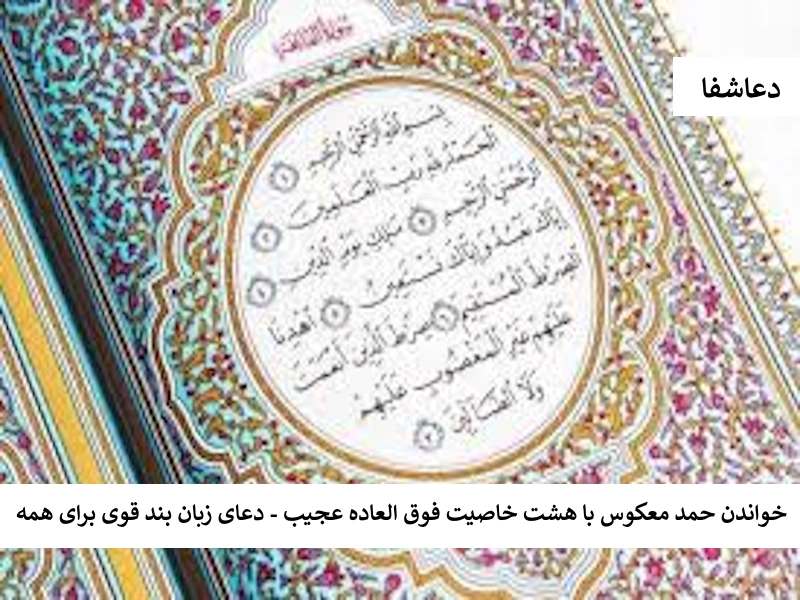 سُورَةُ الْفَاتِحَةِ
دعاشفا
بِسْمِ ٱللَّهِ ٱلرَّحْمَٰنِ ٱلرَّحِيمِ
ٱلْحَمْدُ لِلَّهِ رَبِّ ٱلْعَٰلَمِينَ
ٱلرَّحْمَٰنِ ٱلرَّحِيمِ مَٰلِكِ يَوْمِ ٱلدِّينِ
إِيَّاكَ نَعْبُدُ وَإِيَّاكَ نَسْتَعِينُ ٱهْدِنَا
ٱلصِّرَٰطَ ٱلْمُسْتَقِيمَ صِرَٰطَ ٱلَّذِينَ أَنْعَمْتَ
عَلَيْهِمْ غَيْرِ ٱلْمَغْضُوبِ عَلَيْهِمْ
وَلَا ٱلضَّآلِّينَ
خواندن حمد معکوس با هشت خاصیت فوق العاده عجیب - دعای زبان بند قوی برای همه